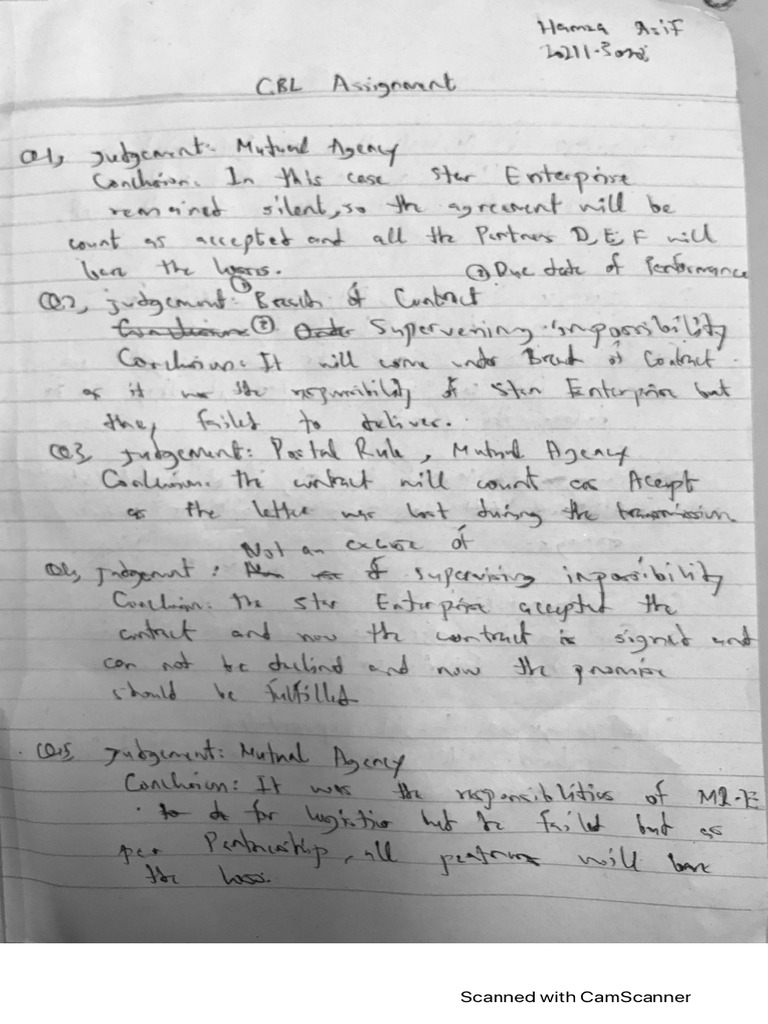 Hamza Asif
20211-30
CBL Assignment
Q1, Judgement: Mutual Agency
Conclusion: In this case Star Enterprise
remained silent, so the agreement will be
count as accepted and all the Partners D, E, F will
bare the losses.
③ Due date of Performance
Q2, Judgement: ① Breach of Contract
② Supervening impossibility
Conclusion: It will come under Breach of Contract
as it was the responsibility of Star Enterprise but
they failed to deliver.
Q3, Judgement: Postal Rule, Mutual Agency
Conclusion: The contract will count as Accept
as the letter was lost during the transmission.
Not an excuse of
Q4, Judgement: of supervising impossibility
Conclusion: The Star Enterprise accepted the
contract and now the contract is signed and
can not be declined and now the promise
should be fulfilled
Q.5 Judgement: Mutual Agency
Conclusion: It was the responsiblities of MR-E
for logistics but he failed but as
per Partnership, all partners will bare
the loss.
Scanned with CamScanner